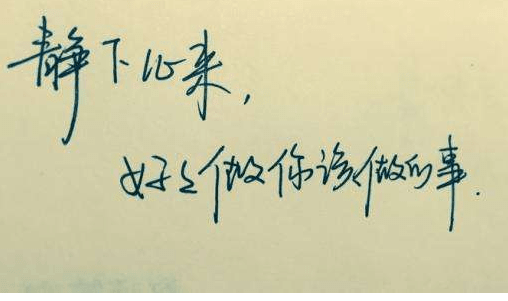 静下心来,
好好做你该做的事.